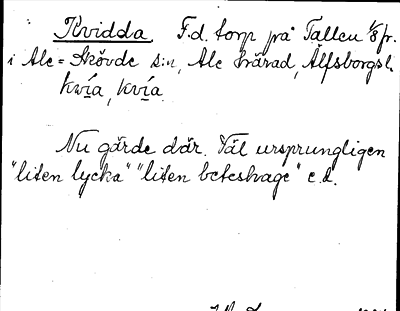 Kvidda. F.d. torp på Tallen 1/8 fr.
i Ale-Skövde s:n, Ale härad, Älfsborgsl.
kvía, kvía
Nu gärde där. Väl ursprungligen
"liten lycka" "liten beteshage" e.d.